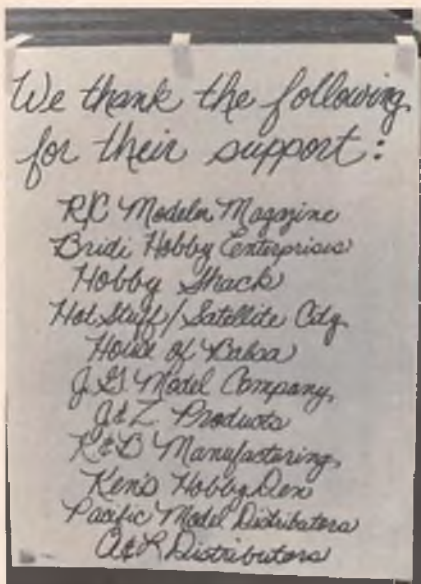 We thank the following
for their support:
R/C Modeler Magazine
Bridi Hobby Enterprises
Hobby Shack
Hot Stuff/Satellite City
House of Balsa
Model Company
J&Z Products
K&B Manufacturing
Ken's Hobby Den
Pacific Model Distributors
Distributors